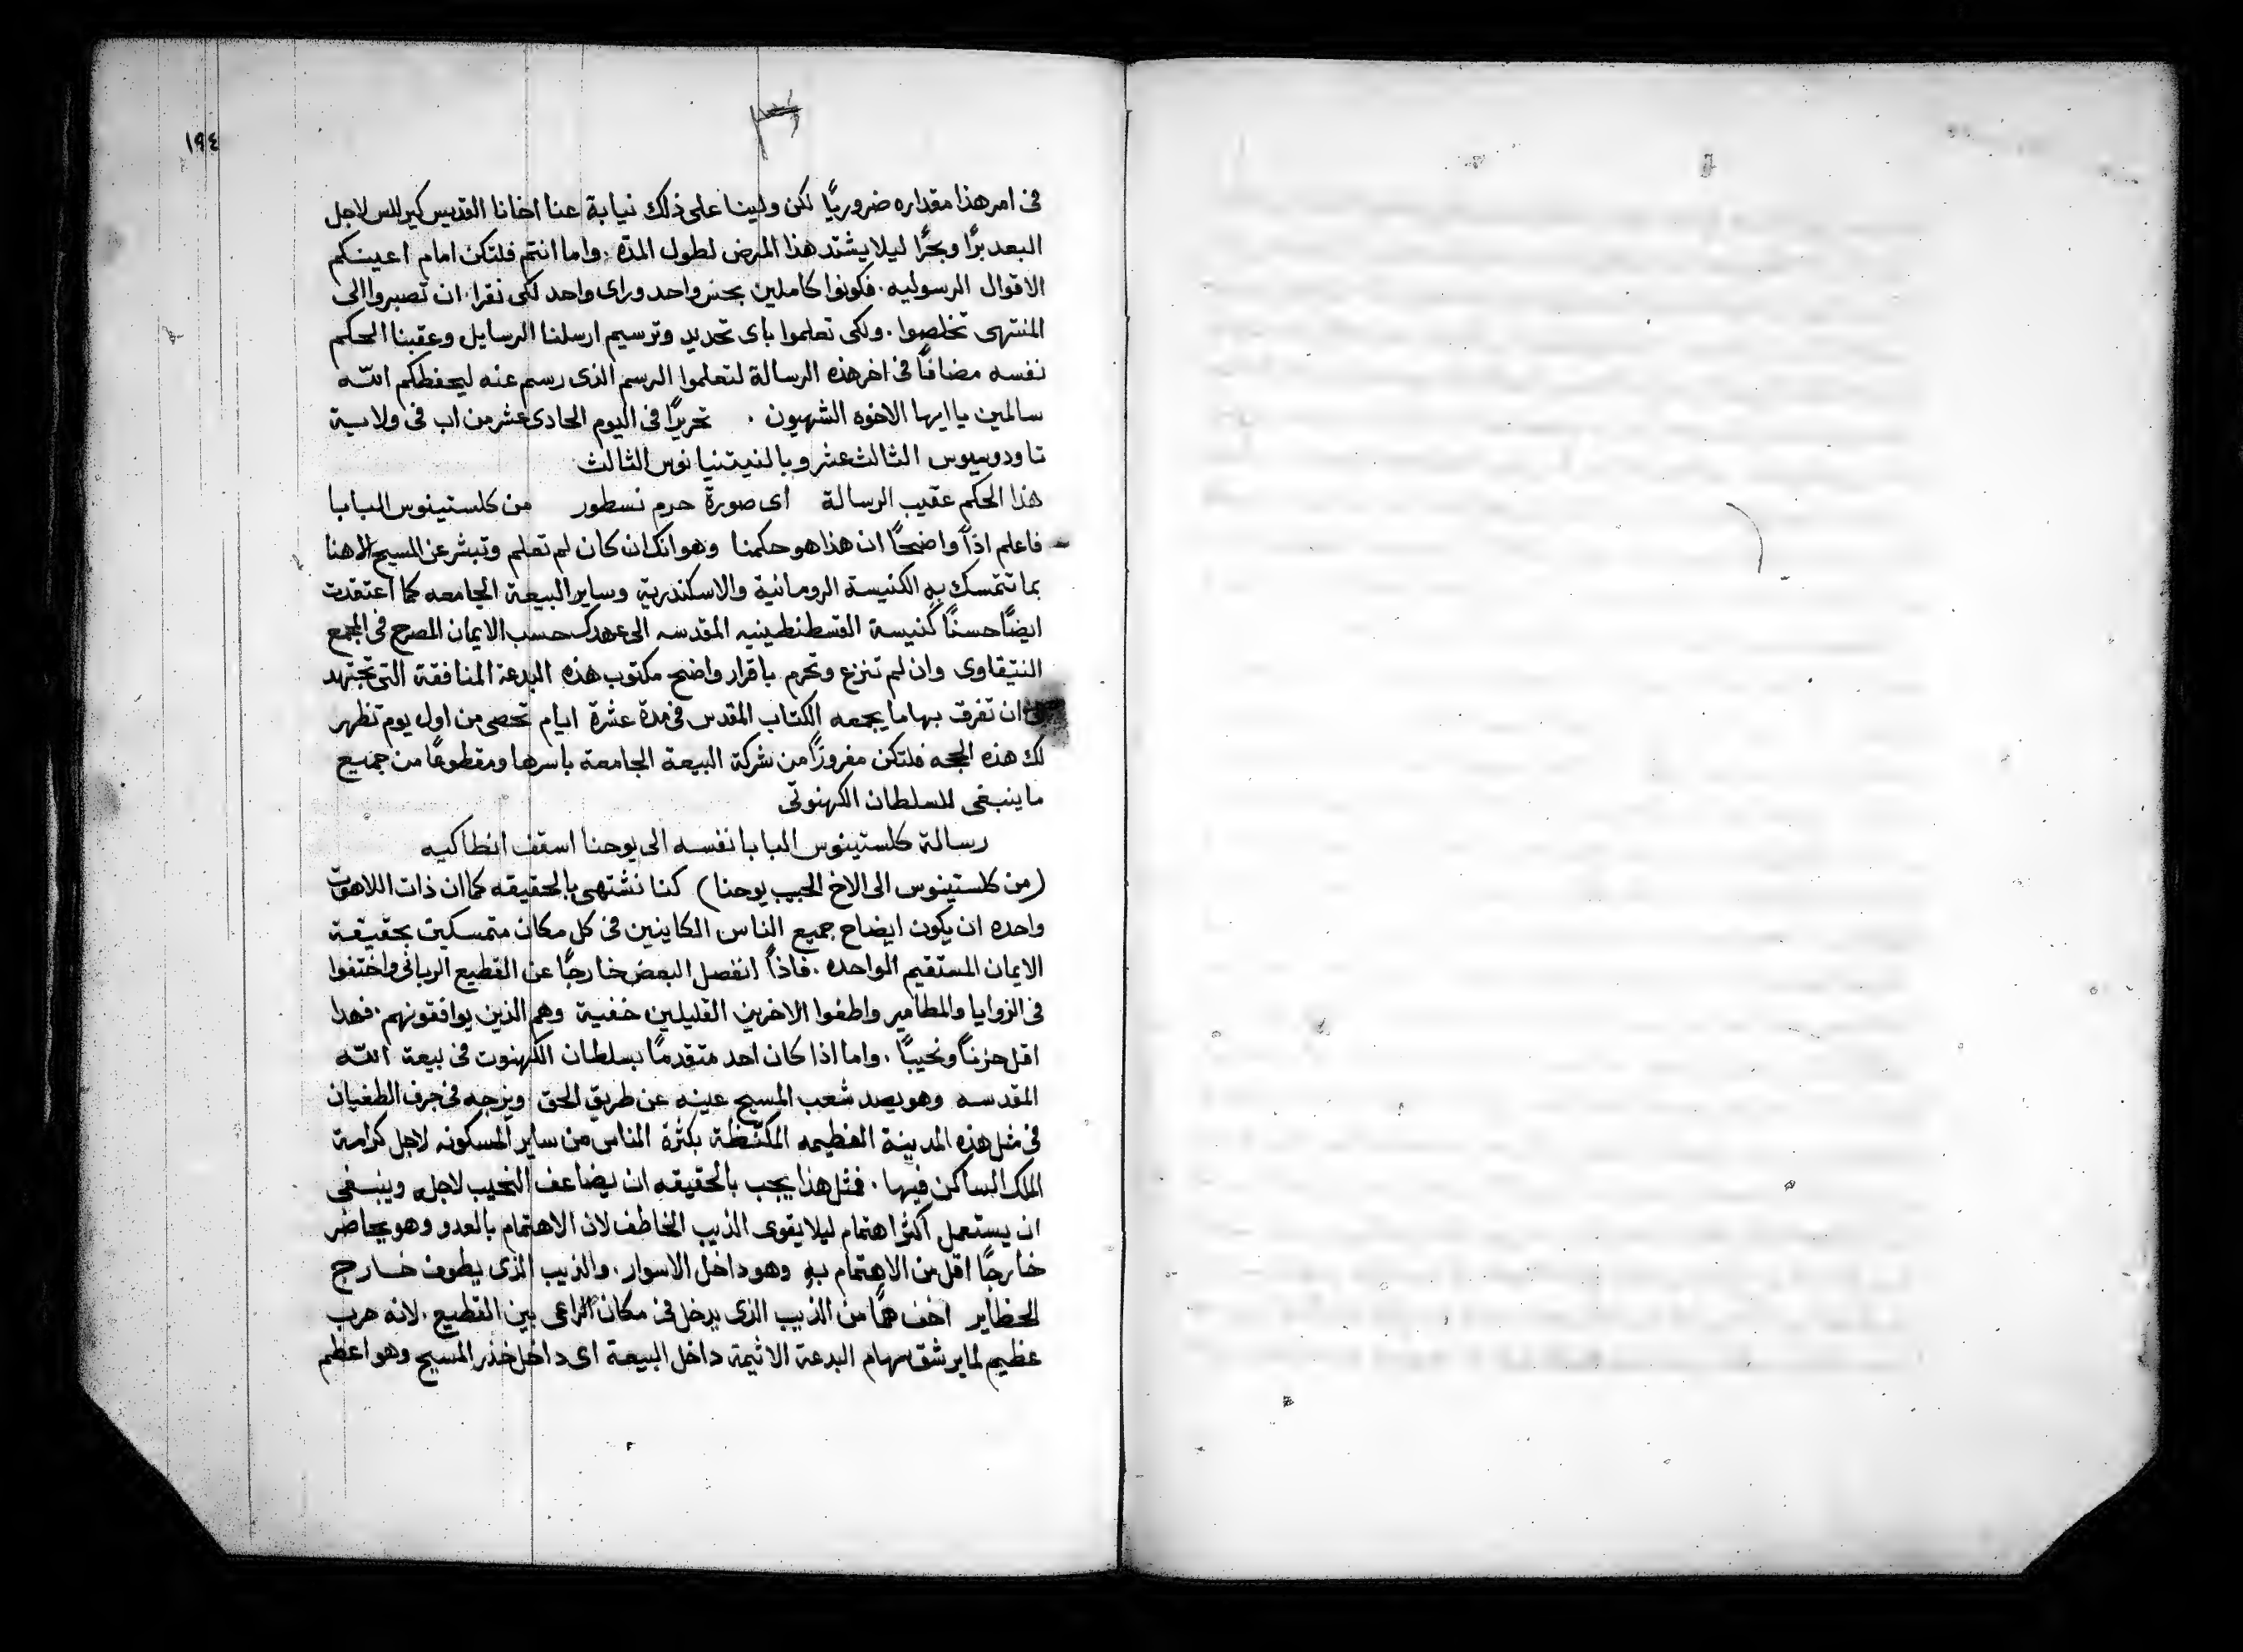 ١٩٤
فى امر هذا مقداره ضروريًا لكن ولينا على ذلك نيابة عنا اخانا القديس كيرللس لاجل
البعد برًّا وبحرًّا ليلا يشتد هذا المرض لطول المدّه . واما انتم فلتكن امام اعينكم
الاقوال الرسوليه . فكونوا كاملين بحس واحد وراى واحد لكى نقرا . ان تصبروا الى
المنتهى تخلصوا . ولكى تعلموا باى تحديد وترسيم ارسلنا الرسايل وعقبنا الحكم
نفسه مضافًا فى اخر هذه الرسالة لتعلموا الرسم الذى رسم عنه ليحفظكم الله
سالمين يا ايها الاخوه الشهيون . تحريرًا فى اليوم الحادى عشر من اب فى ولاية
تاودوسيوس الثالث عشر وبالنيتنيانوس الثالث
هذا الحكم عقيب الرسالة اى صورة حرم نسطور من كلستينوس البابا
فاعلم اذًا واضحًا ان هذا هو حكمنا وهو انك ان كان لم تعلم وتبشر عن المسيح الاهنا
بما تتمسك به الكنيسة الرومانية والاسكندرية وساير البيعة الجامعه كما اعتقدت
ايضًا حسنًا كنيسة القسطنطينيه المقدسه الى عهدك حسب الايمان المصرح فى المجمع
النيقاوى وان لم تنزع وتحرم باقرار واضح مكتوب هذه البدعة المنافقة التى تجتهد
ان تفرق بها ما يجمعه الكتاب المقدس فى مدة عشرة ايام تحصى من اول يوم تظهر
لك هذه الحجه فلتكن مفروزًا من شركة البيعة الجامعة باسرها ومقطوعًا من جميع
ما ينبغى للسلطان الكهنوتى
رسالة كلستينوس البابا نفسه الى يوحنا اسقف انطاكيه
(من كلستينوس الى الاخ الحبيب يوحنا) كنا نشتهى بالحقيقه كما ان ذات اللاهوت
واحده ان يكون ايضاح جميع الناس الكاينين فى كل مكان متمسكين بحقيقة
الايمان المستقيم الواحده . فاذًا انفصل البعض خارجًا عن القطيع الربانى واختفوا
فى الزوايا والمطامير واطغوا الاخرين القليلين خفية وهم الذين يوافقونهم . فهدا
اقل حزنًا ونحيبًا . واما اذا كان احد متقدمًا بسلطان الكهنوت فى بيعة الله
المقدسه وهو يصد شعب المسيح عينه عن طريق الحق ويزجه فى جرف الطغيان
فى مثل هذه المدينة العظيمه المكتظة بكثرة الناس من ساير المسكونه لاجل كرامة
الملك الساكن فيها . فمثل هذا يجب بالحقيقه ان يضاعف النحيب لاجله وينبغى
ان يستعمل اكثر اهتمام ليلا يقوى الذيب الخاطف لان الاهتمام بالعدو وهو يحاصر
خارجًا اقل من الاهتمام به وهو داخل الاسوار . والذيب الذى يطوف خارج
الحظاير اخف همًّا من الذيب الذى يدخل فى مكان الراعى بين القطيع . لانه حرب
عظيم لما يرشق سهام البدعة الاثيمة داخل البيعة اى داخل خدر المسيح وهو اعظم